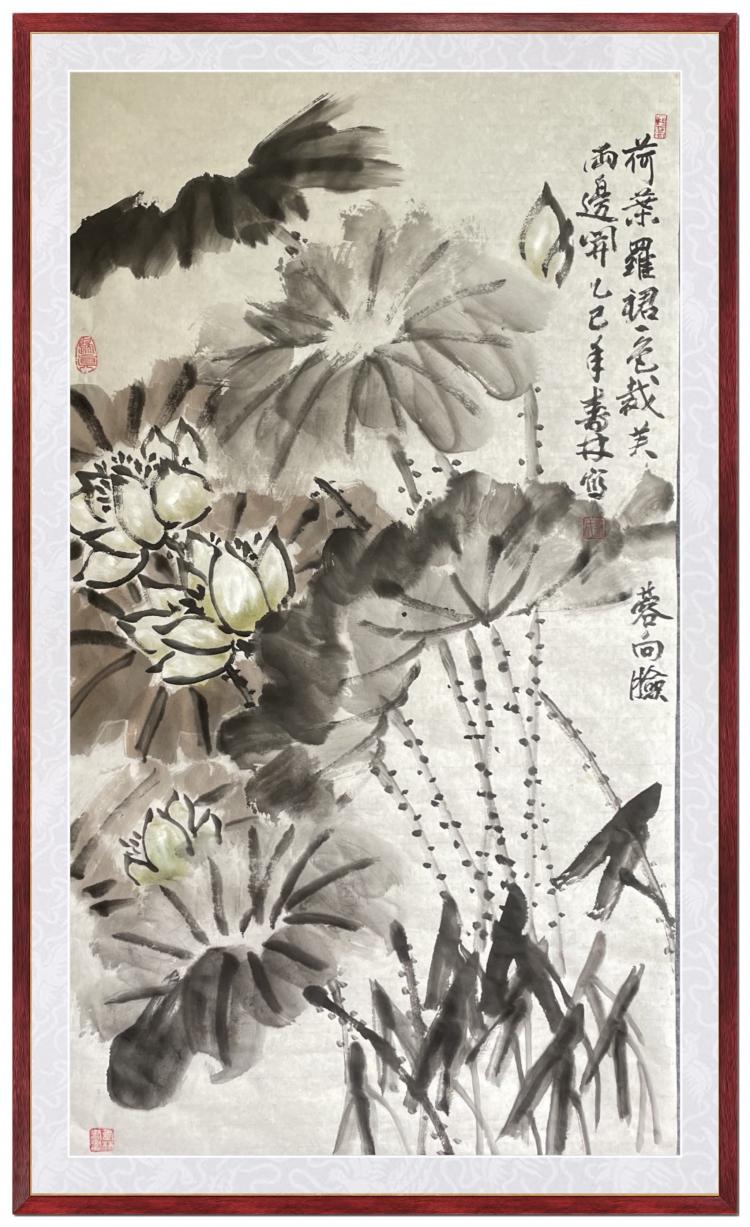 荷葉羅裙一色裁芙
蓉向臉
兩邊開乙巳年壽林寫